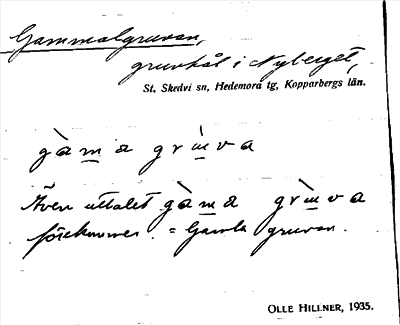 Gammalgruvan,
gruvhål i Nyberget,
St. Skedvi sn, Hedemora tg, Kopparbergs län.
gàma grùva
Även uttalet gàma grùva
förekommer. = Gamla gruvan.
OLLE HILLNER, 1935.